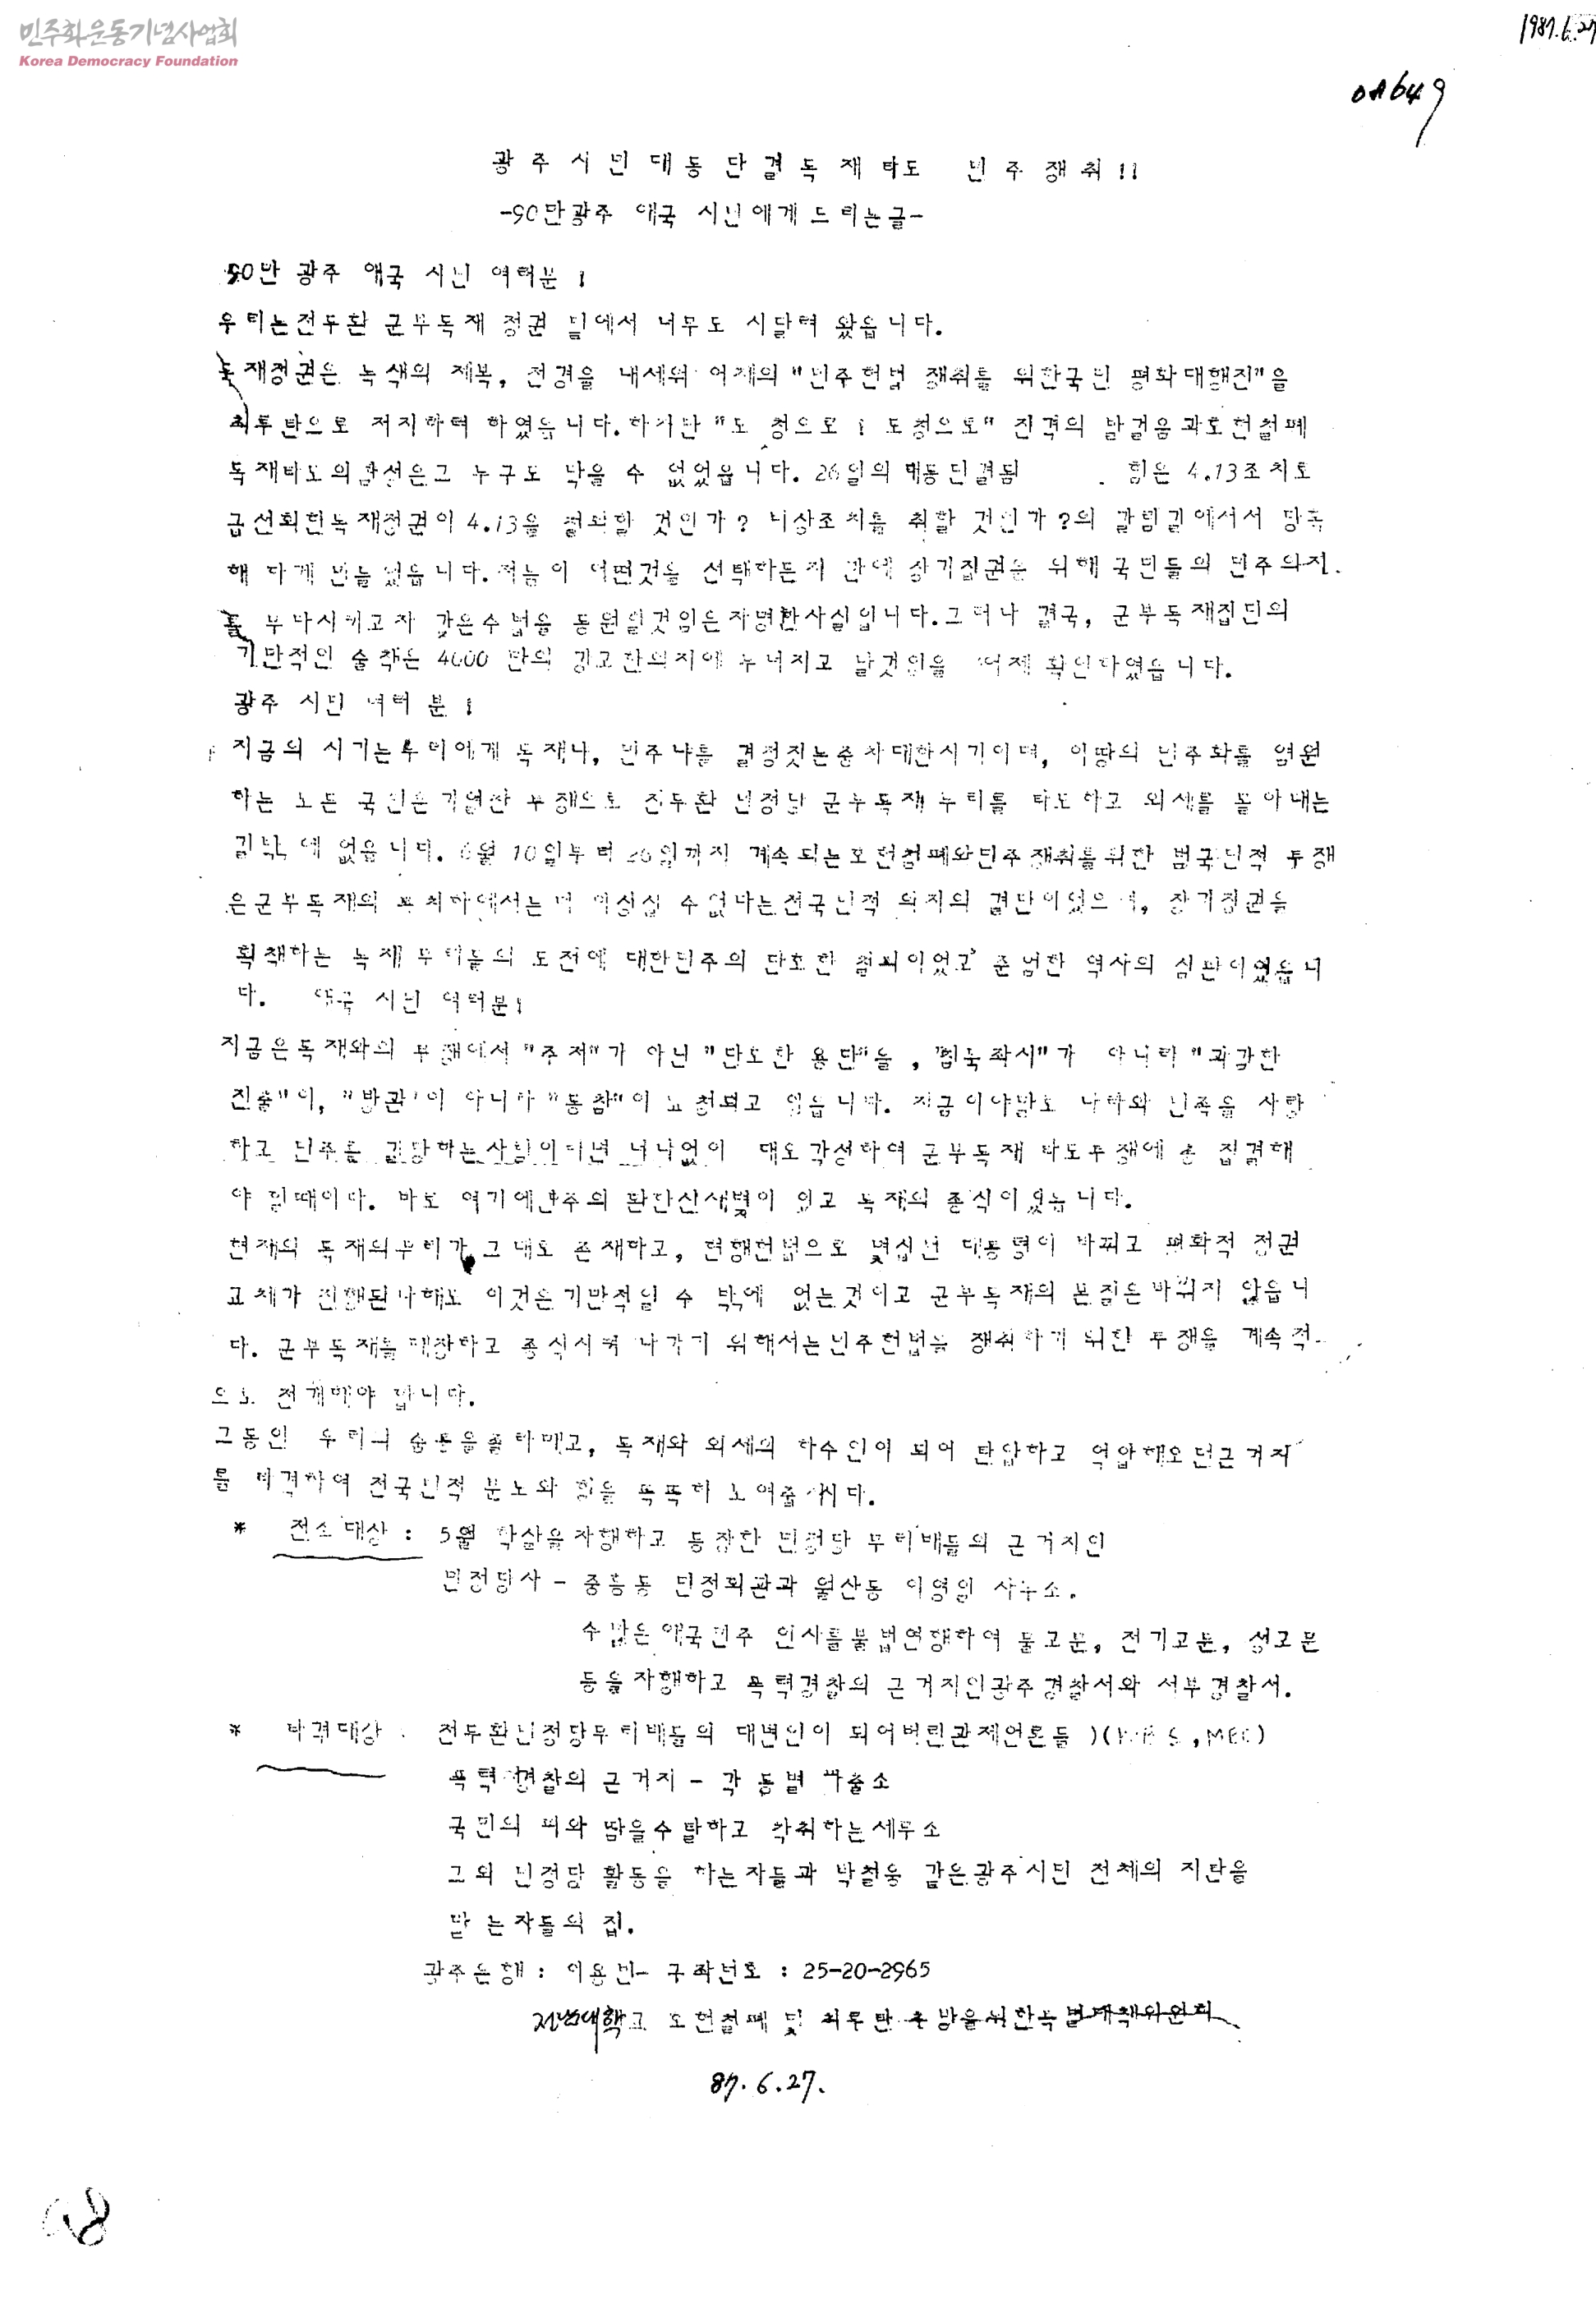 민주화운동기념사업회
Korea Democracy Foundation
1987.6.27
0A649
광주시민대동단결독재타도 민주쟁취!!
-90만광주 애국 시민에게드리는글-
90만 광주 애국 시민 여러분!
우리는전두환 군부독재 정권 밑에서 너무도 시달려 왔읍니다.
독재정권은 녹색의 제복, 전경을 내세워 어제의 "민주헌법 쟁취를 위한국민 평화대행진"을
최루탄으로 저지하려 하였읍니다.하지만 "도 청으로! 도청으로" 진격의 발걸음과호헌철폐
독재타도의함성은그 누구도 막을 수 없었읍니다. 26일의 대동단결됨 힘은 4.13조치로
급선회한독재정권이 4.13을 철회할 것인가? 비상조치를 취할 것인가?의 갈림길에서서 당혹
해 하게 만들었읍니다.저들이 어떤것을 선택하든지 간에 장기집권을 위해 국민들의 민주의지
를 무마시키고자 갖은수법을 동원할것임은자명한사실입니다.그러나 결국, 군부독재집단의
기만적인 술책은 4000 만의 강고한의지에 무너지고 말것임을 어제 확인하였읍니다.
광주 시민 여러 분!
지금의 시기는우리에게 독재냐, 민주냐를 결정짓는중차대한시기이며, 이땅의 민주화를 염원
하는 모든 국민은 가열찬 투쟁으로 전두환 민정당 군부독재무리를 타도하고 외세를 몰아내는
길밖에 없읍니다. 6월 10일부터 26일까지 계속되는호헌철폐와민주쟁취를위한 범국민적 투쟁
은군부독재의 통치하에서는더 이상살 수없다는전국민적 의지의 결단이었으며, 장기집권을
획책하는 독재무리들의 도전에 대한민주의 단호한 철퇴이었고 준엄한 역사의 심판이였읍니
다. 애국 시민 여러분!
지금은독재와의 투쟁에서 "주저"가 아닌 "단호한 용단"을 , "침묵좌시"가 아니라 "과감한
진출"이, "방관"이 아니라 "동참"이 요청되고 있읍니다. 지금이야말로 나라와 민족을 사랑
하고 민주를 갈망하는사람이라면 너나없이 대오각성하여 군부독재 타도투쟁에 총 집결해
야 할때이다. 바로 여기에민주의 환한산새벽이 있고 독재의 종식이있읍니다.
현재의 독재의무리가 그대로 존재하고, 현행헌법으로 몇십번 대통령이 바뀌고 평화적 정권
교체가 진행된다해도 이것은기만적일 수 밖에 없는것이고 군부독재의 본질은바뀌지 않읍니
다. 군부독재를 매장하고 종식시켜 나가기 위해서는민주헌법을 쟁취하기 위한 투쟁을 계속적
으로 전개해야 합니다.
그동안 우리의 숨통을졸라매고, 독재와 외세의 하수인이 되어 탄압하고 억압해오던근거지
를 타격하여 전국민적 분노와 힘을 똑똑히 보여줍시다.
* 전소대상 : 5월 학살을자행하고 등장한 민정당 무리배들의 근거지인
민정당사 - 중흥동 민정회관과 월산동 이영일 사무소.
수많은애국민주 인사를불법연행하여 물고문, 전기고문, 성고문
등을자행하고 폭력경찰의 근거지인광주경찰서와 서부경찰서.
* 타격대상 : 전두환민정당무리배들의 대변인이 되어버린관제언론들 )(KBS ,MBC)
폭력경찰의 근거지 - 각 동별 파출소
국민의 피와 땀을수탈하고 착취하는세무소
그외 민정당 활동을 하는자들과 박철웅 같은광주시민 전체의 지탄을
받는자들의 집.
광주은행 : 이용빈- 구좌번호 : 25-20-2965
전남대학교 호헌철폐 및 최루탄추방을위한특별대책위원회
87. 6.27.